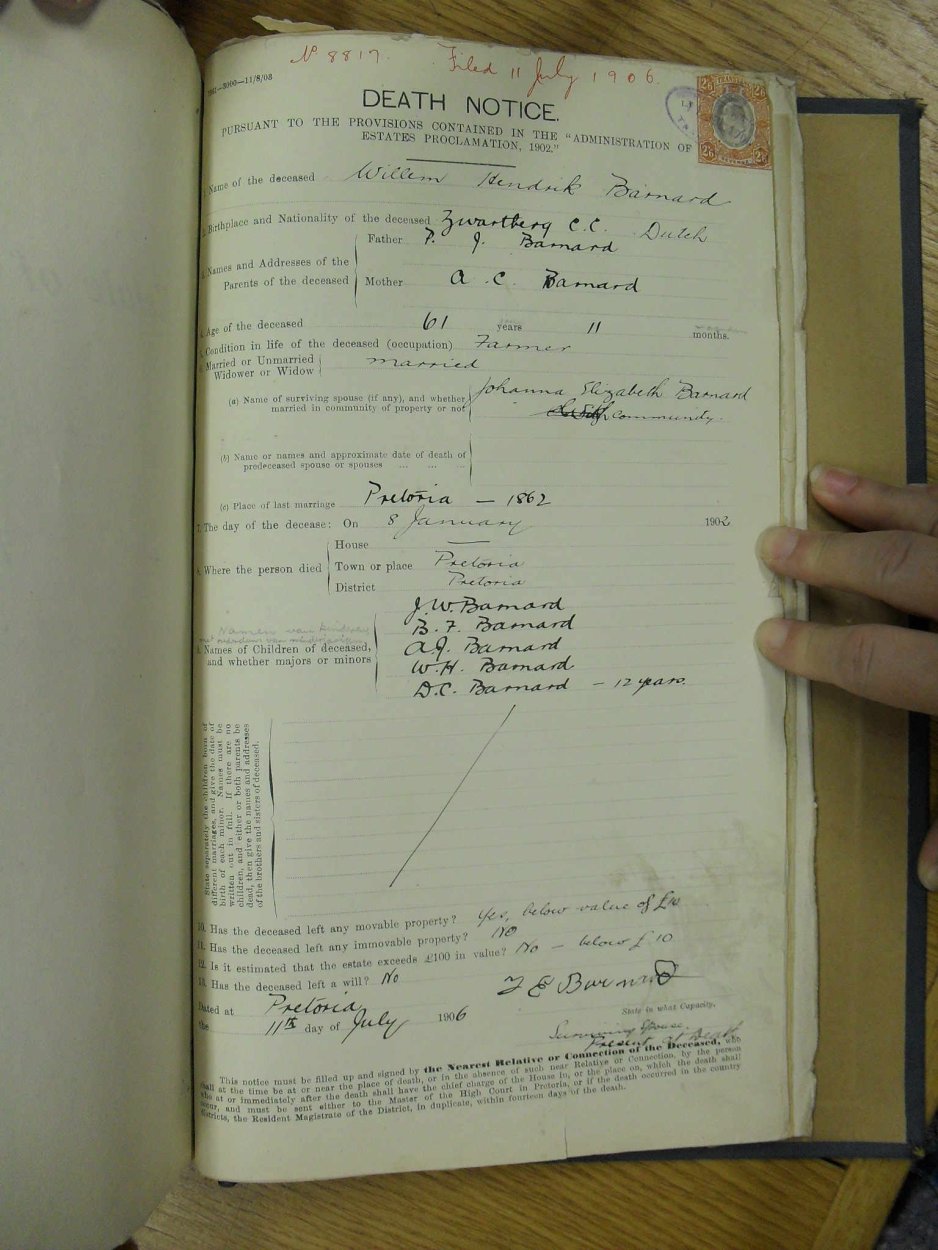 Nº 8817. Filed 11 July 1906.
3000—11/8/03
DEATH NOTICE.
PURSUANT TO THE PROVISIONS CONTAINED IN THE "ADMINISTRATION OF
ESTATES PROCLAMATION, 1902."
2/6 2/6
2/6 2/6
Name of the deceased Willem Hendrik Barnard
Birthplace and Nationality of the deceased Zwartberg C.C. Dutch
Names and Addresses of the
Parents of the deceased
Father P. J. Barnard
Mother A. C. Barnard
Age of the deceased 61 years 11 months.
Condition in life of the deceased (occupation) Farmer
Married or Unmarried
Widower or Widow
married
(a) Name of surviving spouse (if any), and whether
married in community of property or not
Johanna Elizabeth Barnard
community.
(b) Name or names and approximate date of death of
predeceased spouse or spouses ... ... ...
(c) Place of last marriage Pretoria — 1862
7. The day of the decease: On 8 January 1902
Where the person died
House —
Town or place Pretoria
District Pretoria
Names of Children of deceased,
and whether majors or minors
J. W. Barnard
B. F. Barnard
A. J. Barnard
W. H. Barnard
D. C. Barnard — 12 years.
State separately the children born of
different marriages, and give the date of
birth of each minor. Names must be
written out in full. If there are no
children, and either or both parents be
dead, then give the names and addresses
of the brothers and sisters of deceased.
10. Has the deceased left any movable property? Yes, below value of £10
11. Has the deceased left any immovable property? No
12. Is it estimated that the estate exceeds £100 in value? No — below £10
13. Has the deceased left a will? No
Dated at Pretoria
the 11th day of July 1906
E Barnard
State in what Capacity.
Surviving Spouse.
Present at Death
This notice must be filled up and signed by the Nearest Relative or Connection of the Deceased, who
shall at the time be at or near the place of death, or in the absence of such near Relative or Connection, by the person
who at or immediately after the death shall have the chief charge of the House in, or the place on, which the death shall
occur, and must be sent either to the Master of the High Court in Pretoria, or if the death occurred in the country
districts, the Resident Magistrate of the District, in duplicate, within fourteen days of the death.